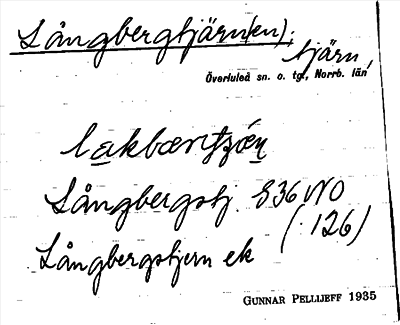 Långbergtjärn(en).
tjärn,
Överluleå sn. o. tgl., Norrb. län
Långbergstj. 936 NO
(126)
Långbergstjern ek
GUNNAR PELLIJEFF 1935